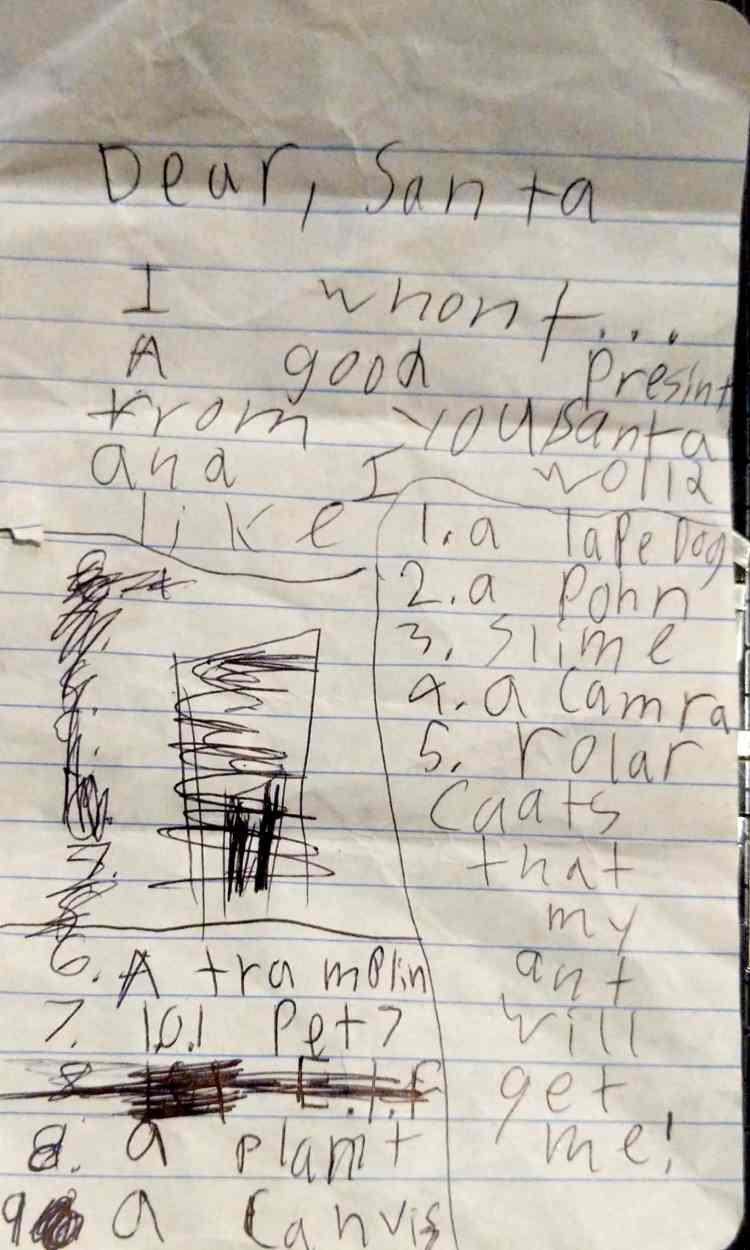 Dear, Santa
I whont...
A good presint
from you santa
and I wolld
like
1. a Tape Dog
2. a Pohn
3. Slime
4. a Camra
5. rolar
Caats
that
my
ant
will
get
me!
6. A tramplin
7. 101 Pets
8. a plant
9. a Canvis